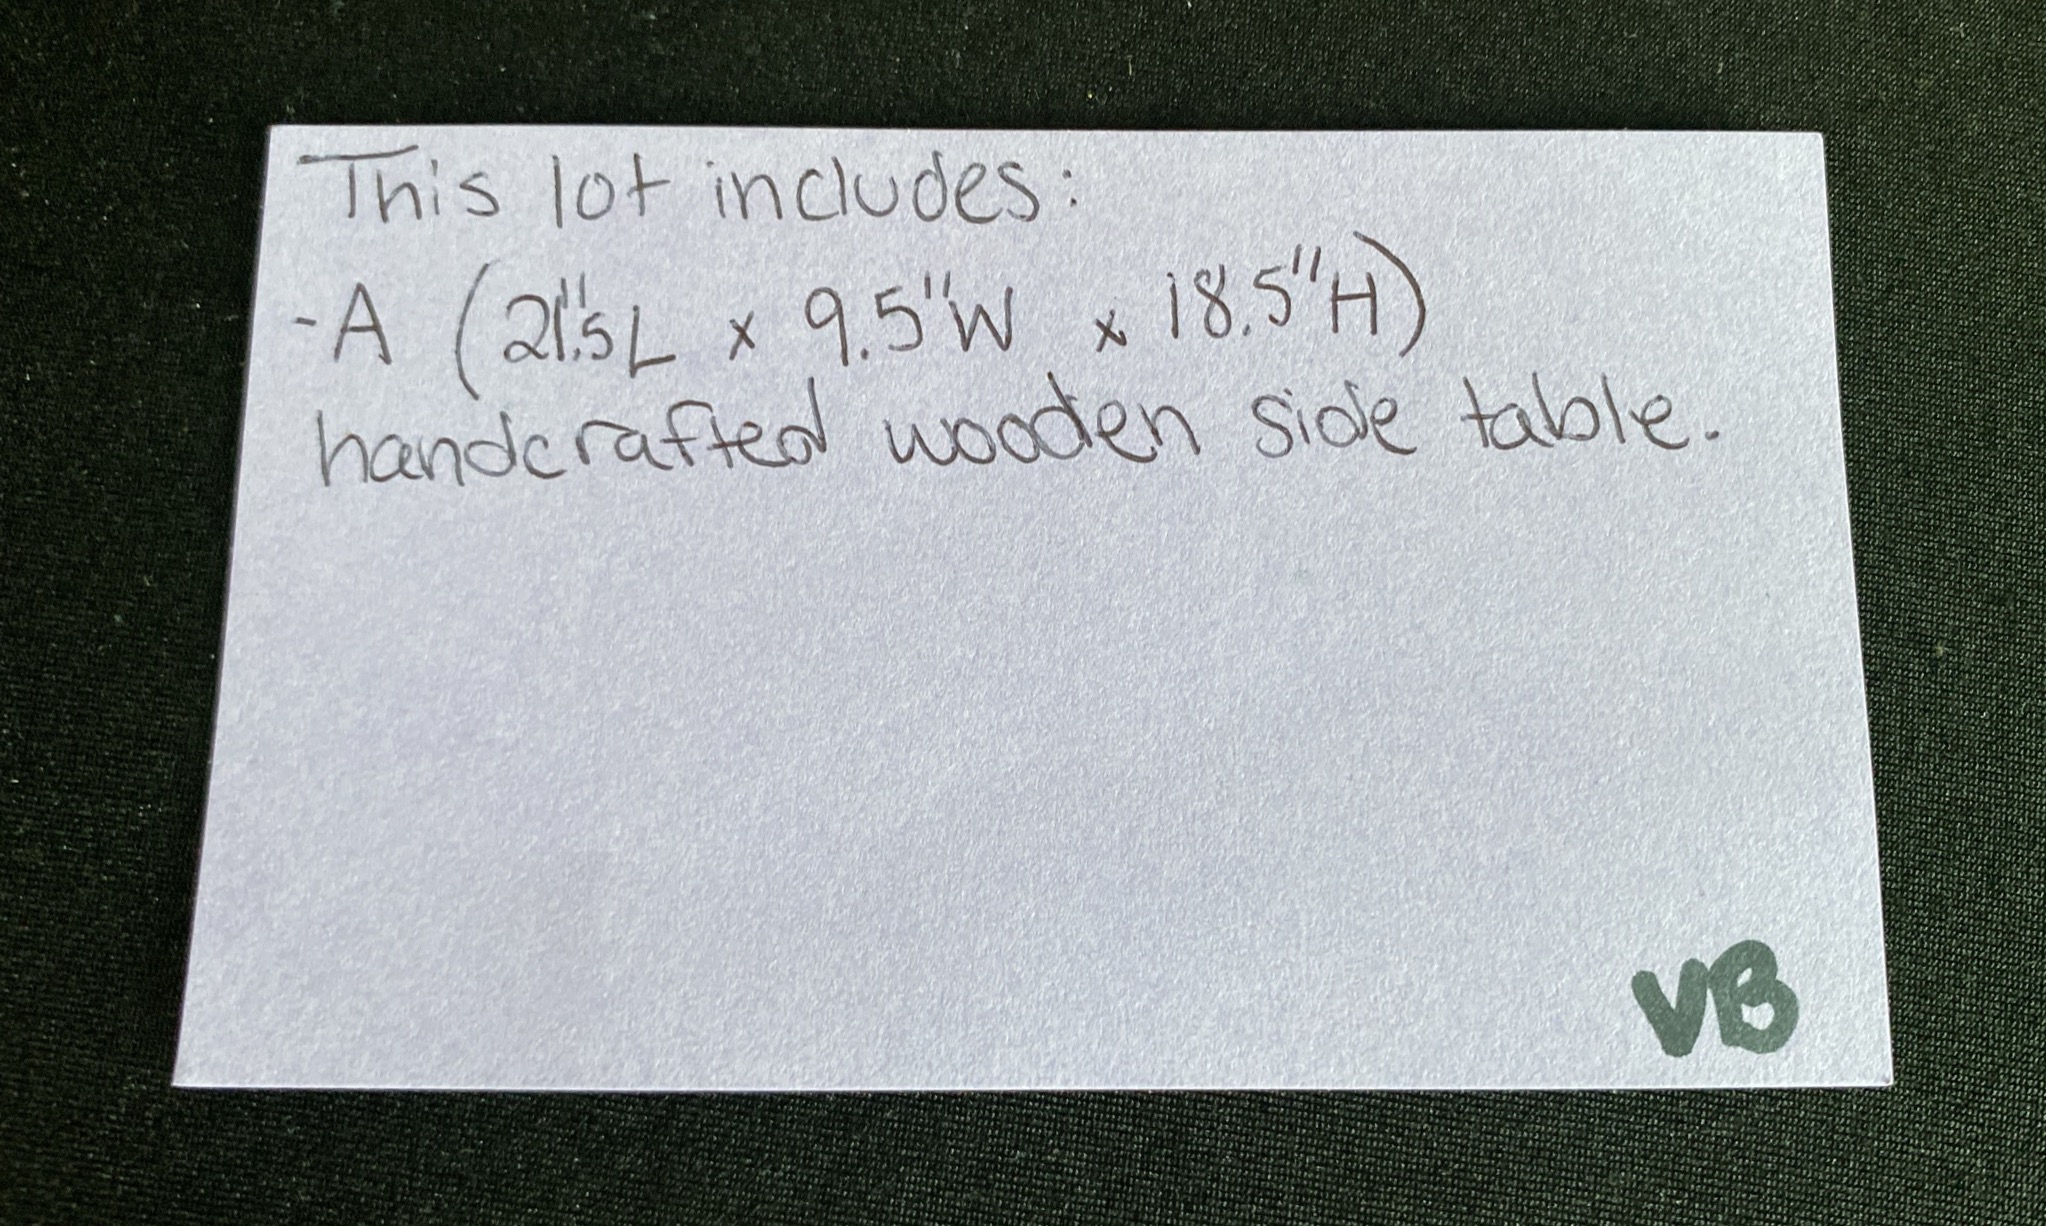 This lot includes:
-A (21.5"L x 9.5"W x 18.5"H)
handcrafted wooden side table.
VB